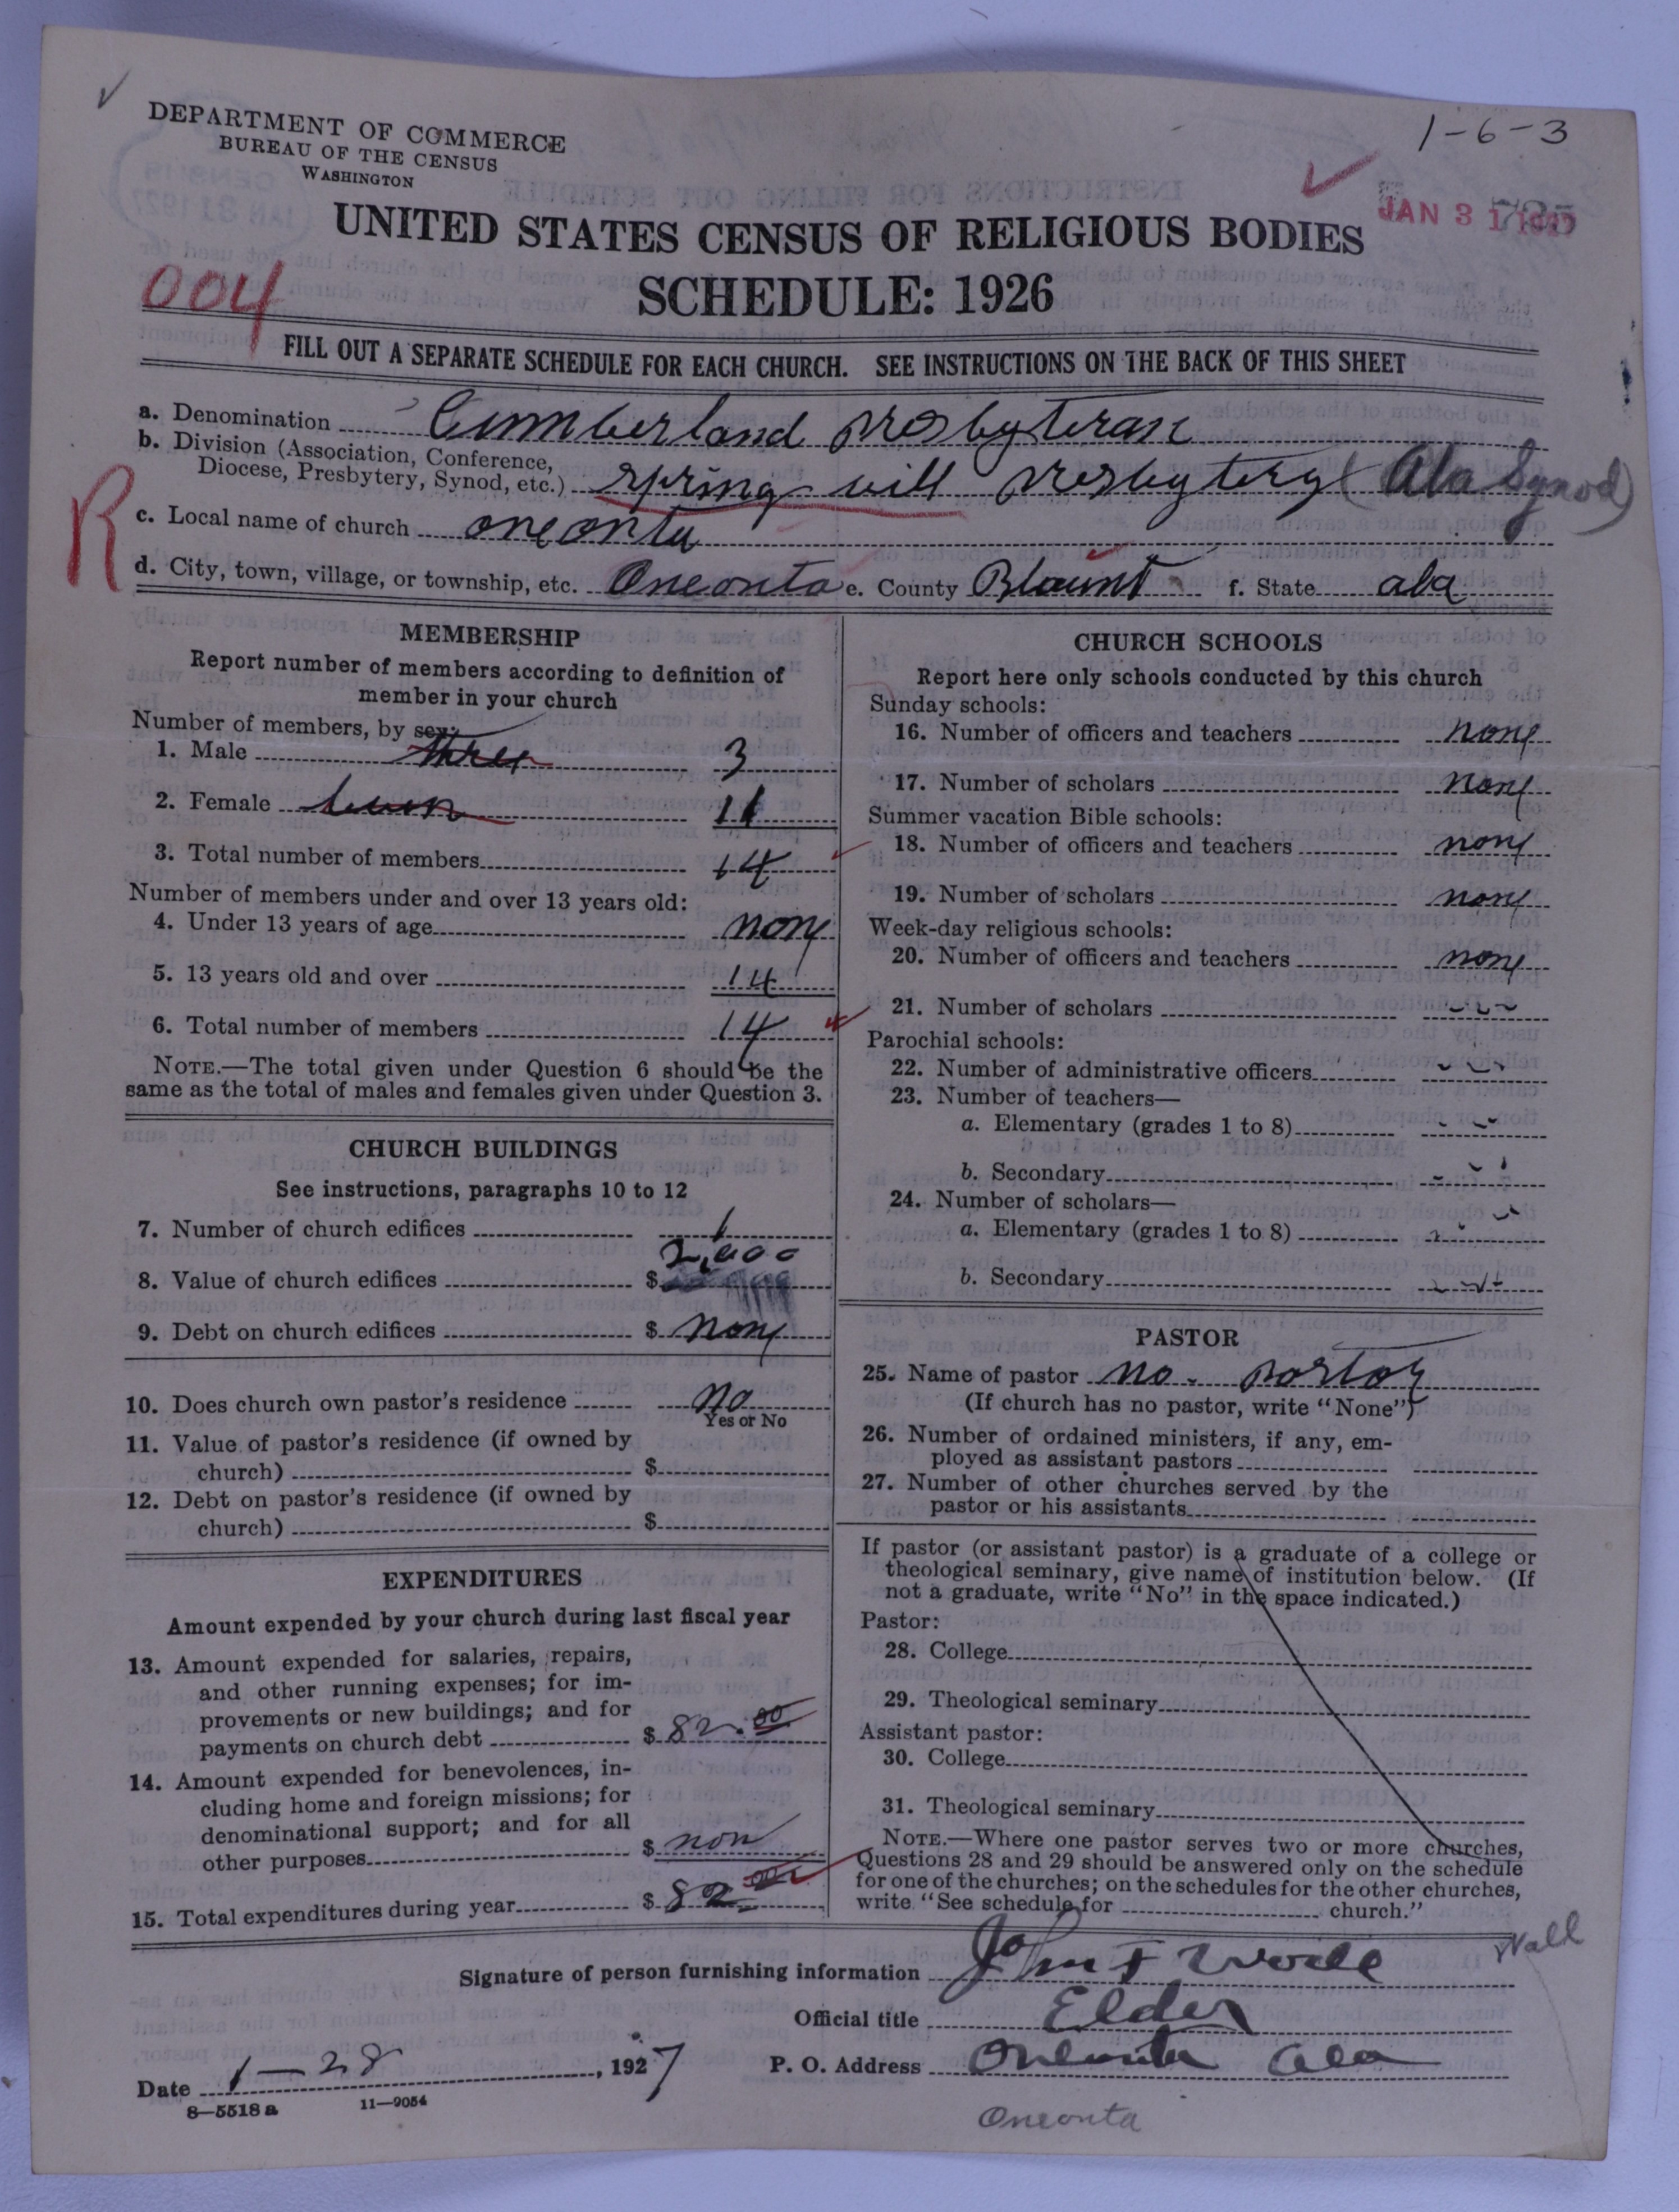 1-6-3
DEPARTMENT OF COMMERCE
BUREAU OF THE CENSUS
WASHINGTON
JAN 31 1927
UNITED STATES CENSUS OF RELIGIOUS BODIES
SCHEDULE: 1926
004
FILL OUT A SEPARATE SCHEDULE FOR EACH CHURCH. SEE INSTRUCTIONS ON THE BACK OF THIS SHEET
a. Denomination Cumberland Presbyteran
b. Division (Association, Conference,
Diocese, Presbytery, Synod, etc.) spring vill Presbytery (Ala Synod)
R
c. Local name of church oneonta
d. City, town, village, or township, etc. Oneonta e. County Blount f. State ala
MEMBERSHIP
Report number of members according to definition of
member in your church
Number of members, by sex:
1. Male three 3
2. Female 11
3. Total number of members 14
Number of members under and over 13 years old:
4. Under 13 years of age none
5. 13 years old and over 14
6. Total number of members 14
NOTE.—The total given under Question 6 should be the
same as the total of males and females given under Question 3.
CHURCH BUILDINGS
See instructions, paragraphs 10 to 12
7. Number of church edifices 1
8. Value of church edifices $ 2,000
9. Debt on church edifices $ none
10. Does church own pastor's residence no
Yes or No
11. Value of pastor's residence (if owned by
church) $
12. Debt on pastor's residence (if owned by
church) $
EXPENDITURES
Amount expended by your church during last fiscal year
13. Amount expended for salaries, repairs,
and other running expenses; for im-
provements or new buildings; and for
payments on church debt $ 82.00
14. Amount expended for benevolences, in-
cluding home and foreign missions; for
denominational support; and for all
other purposes $ non
15. Total expenditures during year $ 82.00
CHURCH SCHOOLS
Report here only schools conducted by this church
Sunday schools:
16. Number of officers and teachers none
17. Number of scholars none
Summer vacation Bible schools:
18. Number of officers and teachers none
19. Number of scholars none
Week-day religious schools:
20. Number of officers and teachers none
21. Number of scholars
Parochial schools:
22. Number of administrative officers
23. Number of teachers—
a. Elementary (grades 1 to 8)
b. Secondary
24. Number of scholars—
a. Elementary (grades 1 to 8)
b. Secondary
PASTOR
25. Name of pastor no. pastor
(If church has no pastor, write "None")
26. Number of ordained ministers, if any, em-
ployed as assistant pastors
27. Number of other churches served by the
pastor or his assistants
If pastor (or assistant pastor) is a graduate of a college or
theological seminary, give name of institution below. (If
not a graduate, write "No" in the space indicated.)
Pastor:
28. College
29. Theological seminary
Assistant pastor:
30. College
31. Theological seminary
NOTE.—Where one pastor serves two or more churches,
Questions 28 and 29 should be answered only on the schedule
for one of the churches; on the schedules for the other churches,
write "See schedule for church."
Wall
Signature of person furnishing information John F
Official title Elder
Date 1-28, 1927 P. O. Address Oneonta ala
8—5518 a 11—9054
Oneonta